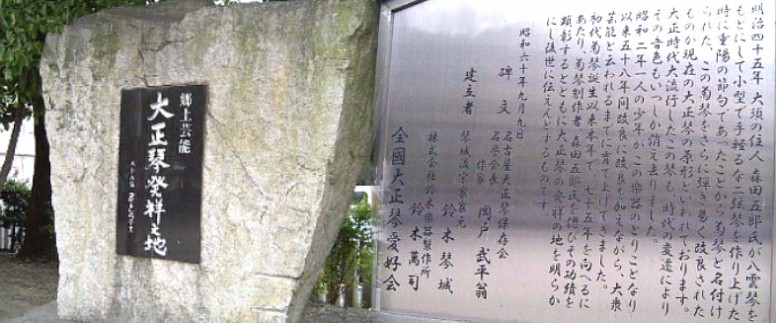 郷土芸能
大正琴発祥之地
明治四十五年 大須の住人 森田五郎氏が八雲琴を
もとにして小型で手軽るな二弦琴を作り上げた
時に重陽の節句であったことから菊琴と名付け
られた、この菊琴をさらに弾き易く改良された
ものが現在の大正琴の原形といわれております。
大正時代大流行したこの琴も、時代の変遷により
その音色もいつしか消え去りました。
昭和二年一人の少年がこの楽器のとりことなり
以来五十八年間改良に改良を加えながら、大衆
芸能と云われるまでに育て上げてきました。
初代菊琴誕生以来本年で、七十五年を向へるに
あたり、菊琴制作者 森田五郎氏を偲びその功績を
顕彰するとともに大正琴の発祥の地を明らか
にし後世に伝えんとするものです。
昭和六十年九月九日
碑文 名古屋大正琴保存会
名誉会長
作家 岡戸武平翁
建立者 琴城流宗家家元
鈴木琴城
株式会社鈴木楽器製作所
鈴木萬司
全國大正琴愛好会